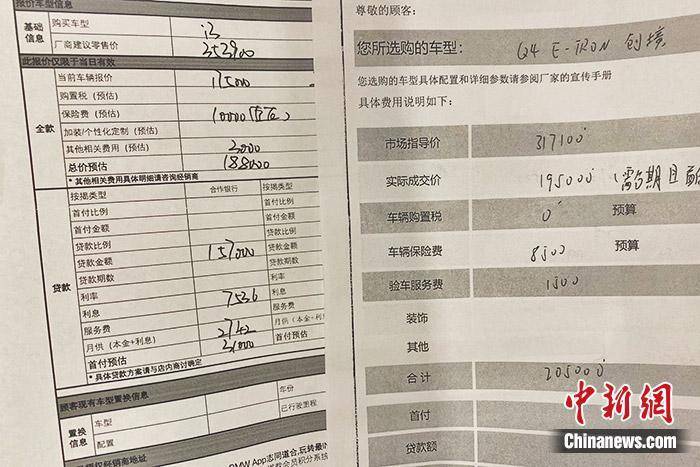 报价车型信息
基础信息
购买车型
i3
厂商建议零售价
353900
此报价仅限于当日有效
全款
当前车辆报价
175000
购置税（预估）
保险费（预估）
10000
加装/个性化定制（预估）
其他相关费用（预估）
3000
总价预估
188000
* 其他相关费用具体明细请咨询经销商
贷款
按揭类型
合作银行
按揭类型
首付比例
首付比例
首付金额
首付金额
贷款比例
贷款比例
贷款金额
157000
贷款金额
贷款期数
贷款期数
利率
利率
利息
7536
利息
服务费
服务费
月供（本金+利息）
2742
月供（本金+利息）
首付预估
31000
首付预估
* 具体贷款方案请与店内商讨确定
顾客现有车型置换信息
置换信息
车型
年份
配置
已行驶里程
经销商地址
BMW App志同道合,玩转最
尊敬的顾客：
您所选购的车型：
Q4 E-TRON 创境
您选购的车型具体配置和详细参数请参阅厂家的宣传手册
具体费用说明如下：
市场指导价
317100
实际成交价
195000（需分期且
车辆购置税
0
预算
车辆保险费
8500
预算
验车服务费
1500
装饰
其他
合计
205000
首付
贷款额
中新网
Chinanews.com